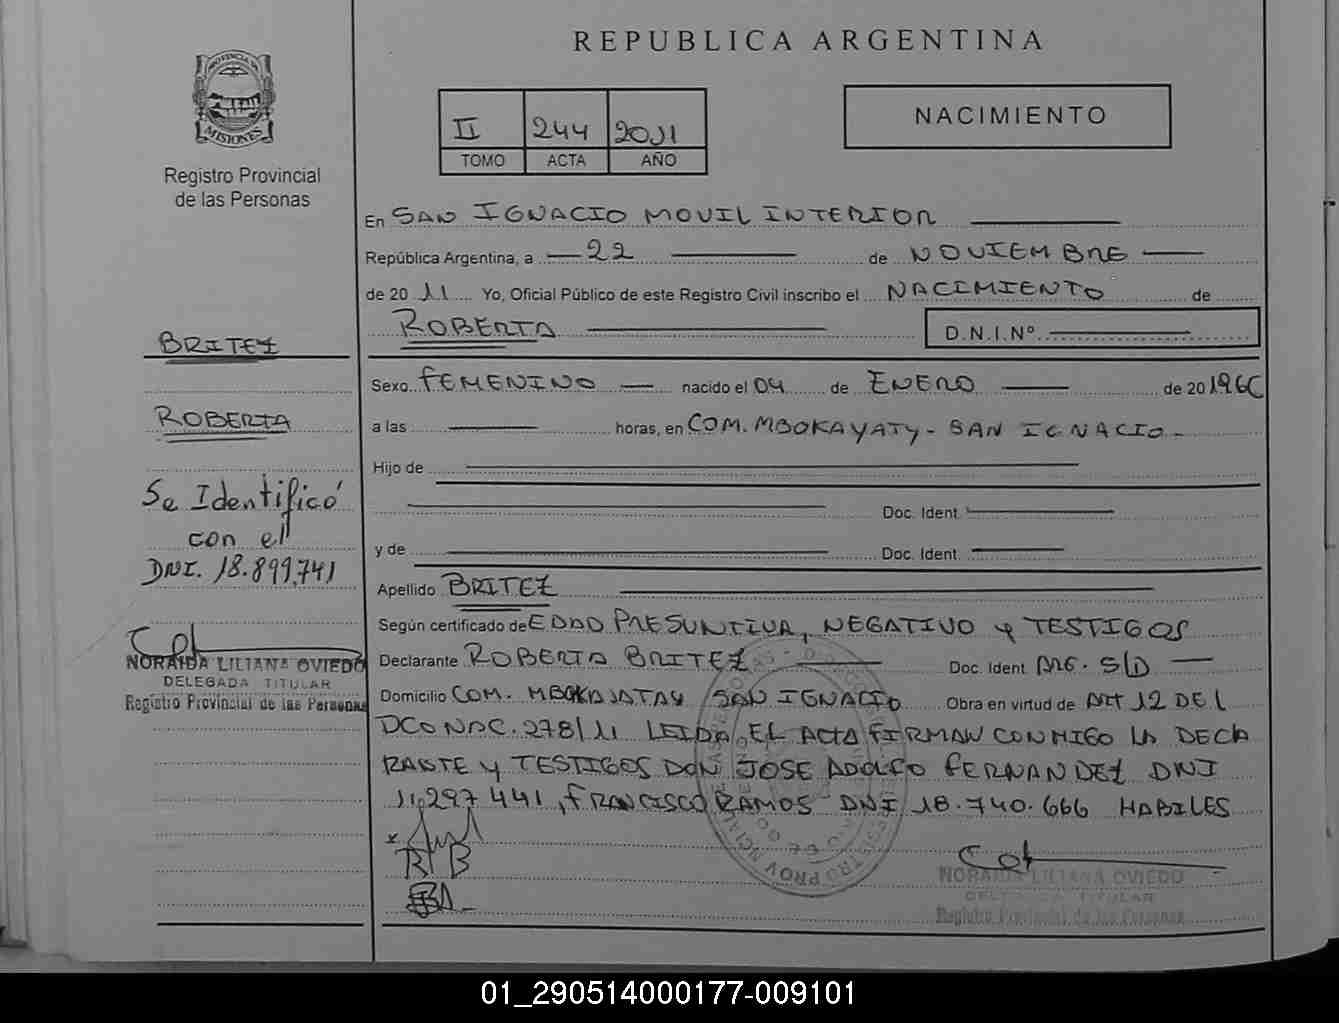 REPUBLICA ARGENTINA
PROVINCIA DE
MISIONES
Registro Provincial
de las Personas
II 244 2011
TOMO ACTA AÑO
NACIMIENTO
En SAN IGNACIO MOVIL INTERIOR
República Argentina, a 22 de NOVIEMBRE
de 20 11 Yo, Oficial Público de este Registro Civil inscribo el NACIMIENTO de
ROBERTA D.N.I.Nº
BRITEZ
Sexo FEMENINO nacido el 04 de ENERO de 20
ROBERTA
a las horas, en COM. MBOKAYATY - SAN IGNACIO -
Hijo de
Se Identificó
con el
DNI. 18.899.741
Doc. Ident.
y de Doc. Ident.
Apellido BRITEZ
Según certificado de EDAD PRESUNTIVA, NEGATIVO Y TESTIGOS
Declarante ROBERTA BRITEZ Doc. Ident. ARG. S/D
Domicilio COM. MBOKAJATAY SAN IGNACIO Obra en virtud de ART 12 DEL
DCO NAC. 278/11 LEIDA EL ACTA FIRMAN CONMIGO LA DECLA
RANTE Y TESTIGOS DON JOSE ADOLFO FERNANDEZ DNI
11.297.441, FRANCISCO RAMOS DNI 18.740.666 HABILES
NORAIDA LILIANA OVIEDO
DELEGADA TITULAR
Registro Provincial de las Personas
RB
NORAIDA LILIANA OVIEDO
DELEGADA TITULAR
Registro Provincial de las Personas
01_290514000177-009101